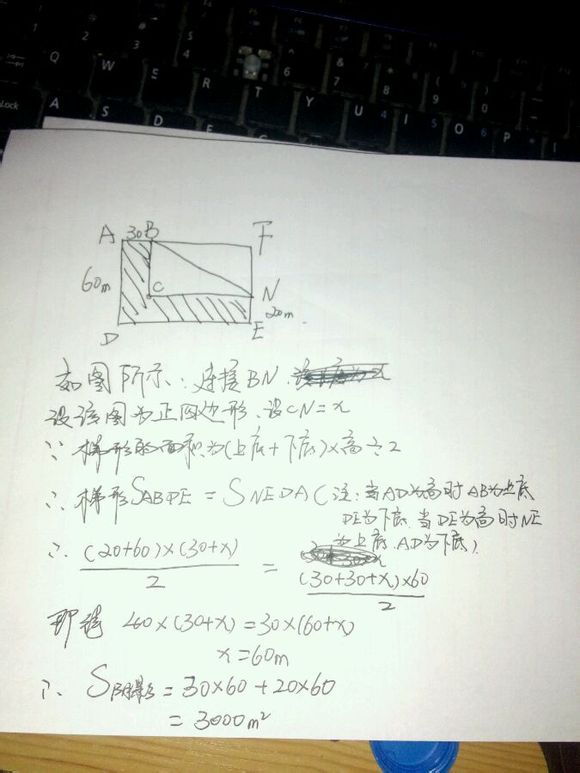 A 30 B F
60m C N
20m
D E
如图所示、连接BN.
设该图为正四边形、设CN=x
∵梯形的面积为(上底+下底)×高÷2
∴梯形SABDE = SNEDA (注:当AD为高时AB为上底
DE为下底.当DE为高时NE
为上底.AD为下底)
∴ (20+60)×(30+x) / 2 = (30+30+x)×60 / 2
即得 40×(30+x)=30×(60+x)
x=60m
∴ S阴影=30×60+20×60
=3000m²
Q W E R T Y U I O P
A S D